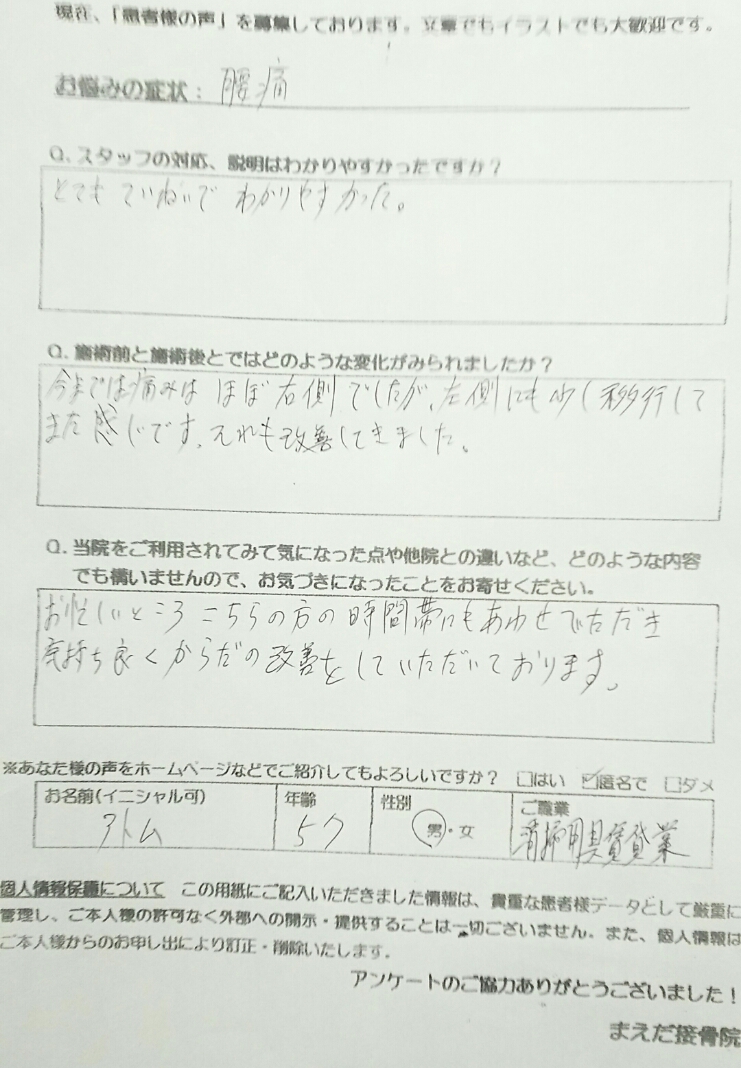 現在、「患者様の声」を募集しております。文章でもイラストでも大歓迎です。
お悩みの症状： 腰痛
Q. スタッフの対応、説明はわかりやすかったですか？
とても ていねいで わかりやすかった。
Q. 施術前と施術後とではどのような変化がみられましたか？
今までは痛みは ほぼ右側でしたが、左側にも少し移行して
きた感じです、それも改善してきました。
Q. 当院をご利用されてみて気になった点や他院との違いなど、どのような内容
でも構いませんので、お気づきになったことをお寄せください。
お忙しいところ こちらの方の時間帯にもあわせていただき
気持ち良く からだの改善をしていただいております。
※あなた様の声をホームページなどでご紹介してもよろしいですか？ □はい ☑匿名で □ダメ
お名前(イニシャル可) 年齢 性別 ご職業
アトム 57 男・女 清掃用具賃貸業
個人情報保護について この用紙にご記入いただきました情報は、貴重な患者様データとして厳重に
管理し、ご本人様の許可なく外部への開示・提供することは一切ございません。また、個人情報は
ご本人様からのお申し出により訂正・削除いたします。
アンケートのご協力ありがとうございました！
まえだ接骨院